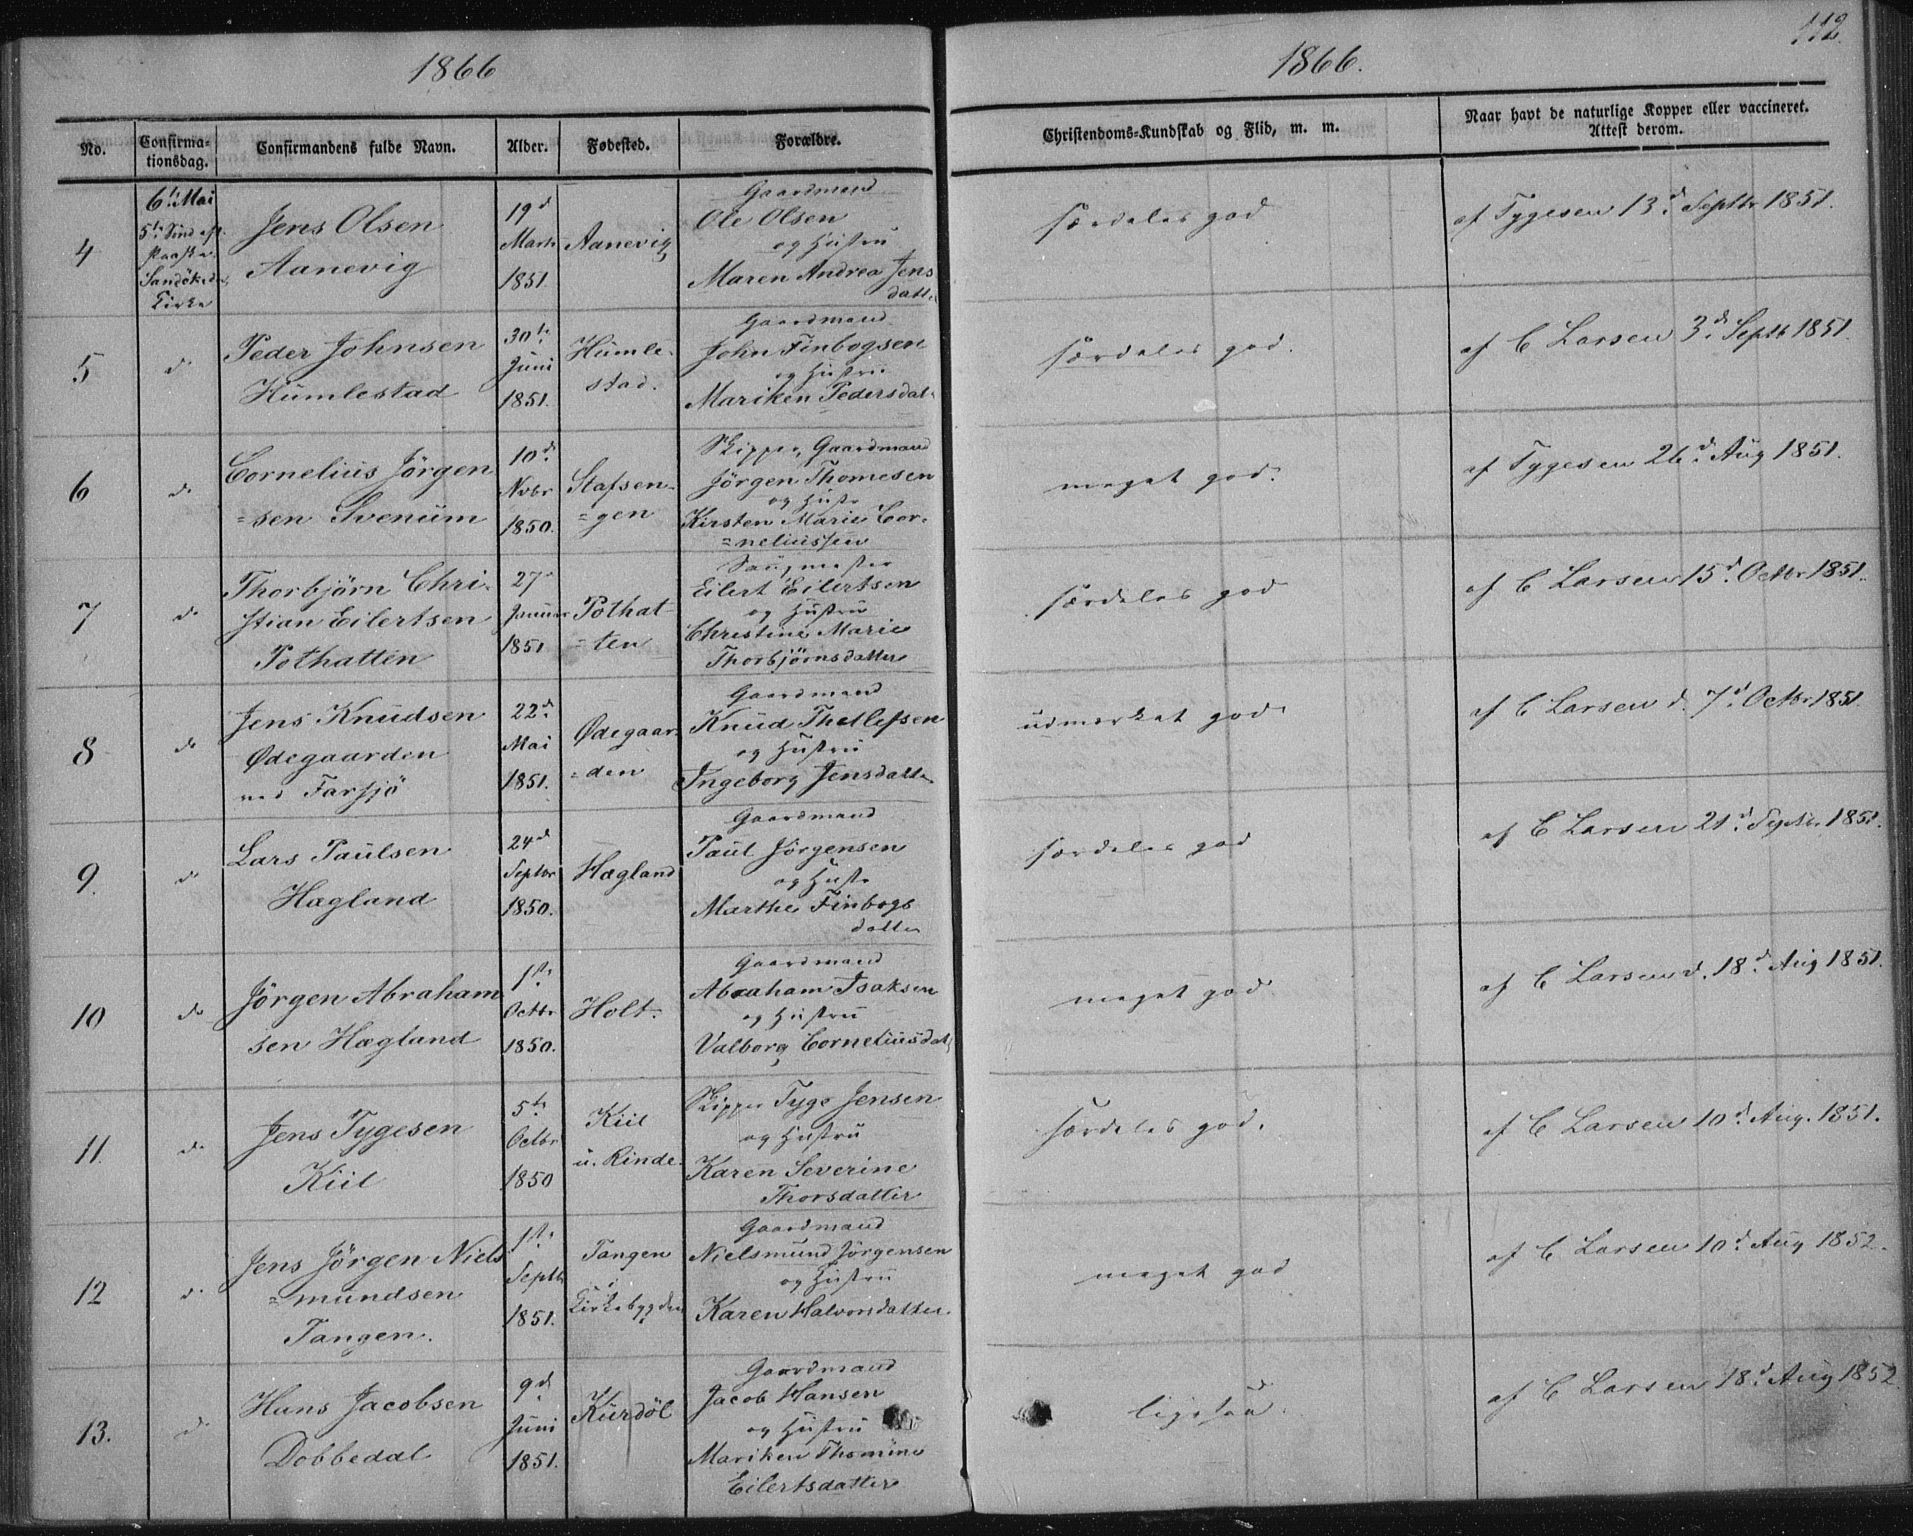 1866
1866.
112.
No.
Confirma-
tionsdag.
Confirmandens fulde Navn.
Alder.
Fødested.
Forældre.
Christendoms-Kundskab og Flid, m. m.
Naar havt de naturlige Kopper eller vaccineret.
Attest derom.
4
6te Mai
5te Sønd. eft.
Paaske
Sandökedr
Kirke
Jens Olsen
Aanevig
19d
Marts
1851.
Aanevig
Gaardmand
Ole Olsen
og Hustru
Maren Andrea Jens
datter
særdeles god
af Tygesen 13d Septbr 1851.
5
do
Peder Johnsen
Humlestad
30te
Juni
1851.
Humle-
stad.
Gaardmand
John Finbogsen
og Hustru
Mariken Pedersdat.
særdeles god.
af C Larsen 3d Septb 1851.
6
do
Cornelius Jörgen
=sen Svenum
10d
Nvbr
1850.
Stafsen-
=gen
Skipper, Gaardmand
Jörgen Thomesen
og Hustr
Kirsten Marie Cor-
=neliussen
meget god.
af Tygesen 26d Aug 1851.
7
do
Thorbjörn Chri-
stian Eilertsen
Pothatten
27d
Januar
1851
Pothat
=ten
Saugmester
Eilert Eilertsen
og Hustru
Christine Marie
Thorbjørnsdatter
særdeles god
af C Larsen 15d Octbr 1851.
8
do
Jens Knudsen
Ødegaarden
ved Farsjö
22d
Mai
1851.
Ødegaar-
=den
Gaardmand
Knud Thellefsen
og Hustru
Ingeborg Jensdatter
udmærket god.
af C Larsen d. 7d Octbr 1851.
9.
do
Lars Paulsen
Hægland
24d
Septbr
1850.
Hægland
Gaardmand
Paul Jörgensen
og Hustr
Marthe Finbogs
datter
særdeles god
af C Larsen 21d Septbr. 1851.
10
do
Jörgen Abraham
sen Hægland
1ste
Octbr
1850.
Holt.
Gaardmand
Abraham Isaksen
og Hustru
Valborg Corneliusdat
meget god.
af C Larsen d. 18d Aug 1851.
11.
do
Jens Tygesen
Kiil
5te
Octbr
1850
Kiil
u. Rinde.
Skipper Tyge Jensen
og Hustru
Karen Severine
Thorsdatter
særdeles god.
af C Larsen 10d Aug. 1851.
12
do
Jens Jörgen Niels
=mundsen
Tangen.
1ste
Septb
1851.
Tangen
i
Kirkebygden
Gaardmand
Nielsmund Jörgensen
og Hustru
Karen Halvorsdatter.
meget god
af C Larsen 10d Aug 1852.
13.
do
Hans Jacobsen
Dobbedal
9d
Juni
1851.
Kurdöl
Gaardmand
Jacob Hansen
og Hustru
Mariken Thomine
Eilertsdatter
ligesaa.
af C Larsen 18d Aug 1852